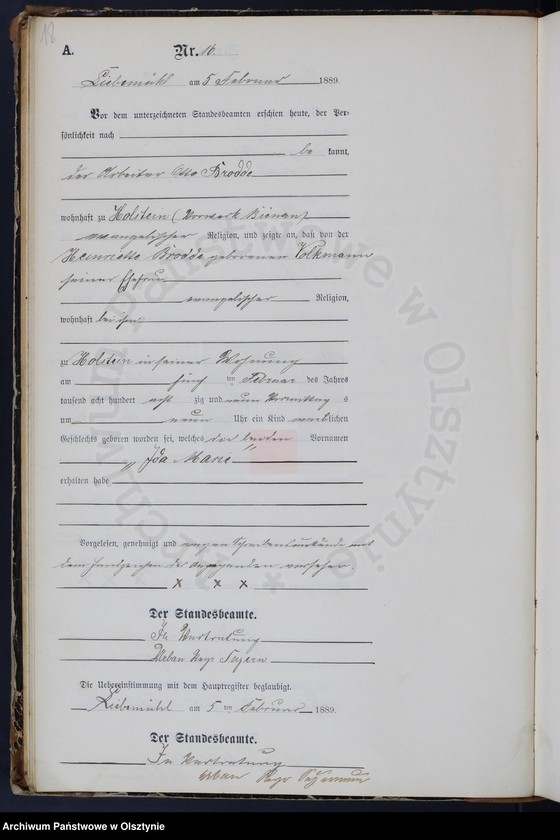 18
A. Nr. 16.
Liebemühl am 5 Februar 1889.
Vor dem unterzeichneten Standesbeamten erschien heute, der Per-
sönlichkeit nach
be kannt,
der Arbeiter Otto Brodde
wohnhaft zu Holstein (Vorwerk Bienau)
evangelischer Religion, und zeigte an, daß von der
Henriette Brodde geborenen Volkmann
seiner Ehefrau
evangelischer Religion,
wohnhaft bei ihm
zu Holstein in seiner Wohnung
am fünf ten Februar des Jahres
tausend acht hundert acht zig und neun Vormittag s
um neun Uhr ein Kind weiblichen
Geschlechts geboren worden sei, welches die beiden Vornamen
„Ida Marie“
erhalten habe
Vorgelesen, genehmigt und wegen Schreibensunkunde mit
dem Handzeichen des Anzeigenden versehen
x x x
Der Standesbeamte.
In Vertretung
Urban
Die Uebereinstimmung mit dem Hauptregister beglaubigt.
Liebemühl am 5 ten Februar 1889.
Der Standesbeamte.
In Vertretung
Urban
Archiwum Państwowe w Olsztynie
Archiwum Państwowe w Olsztynie